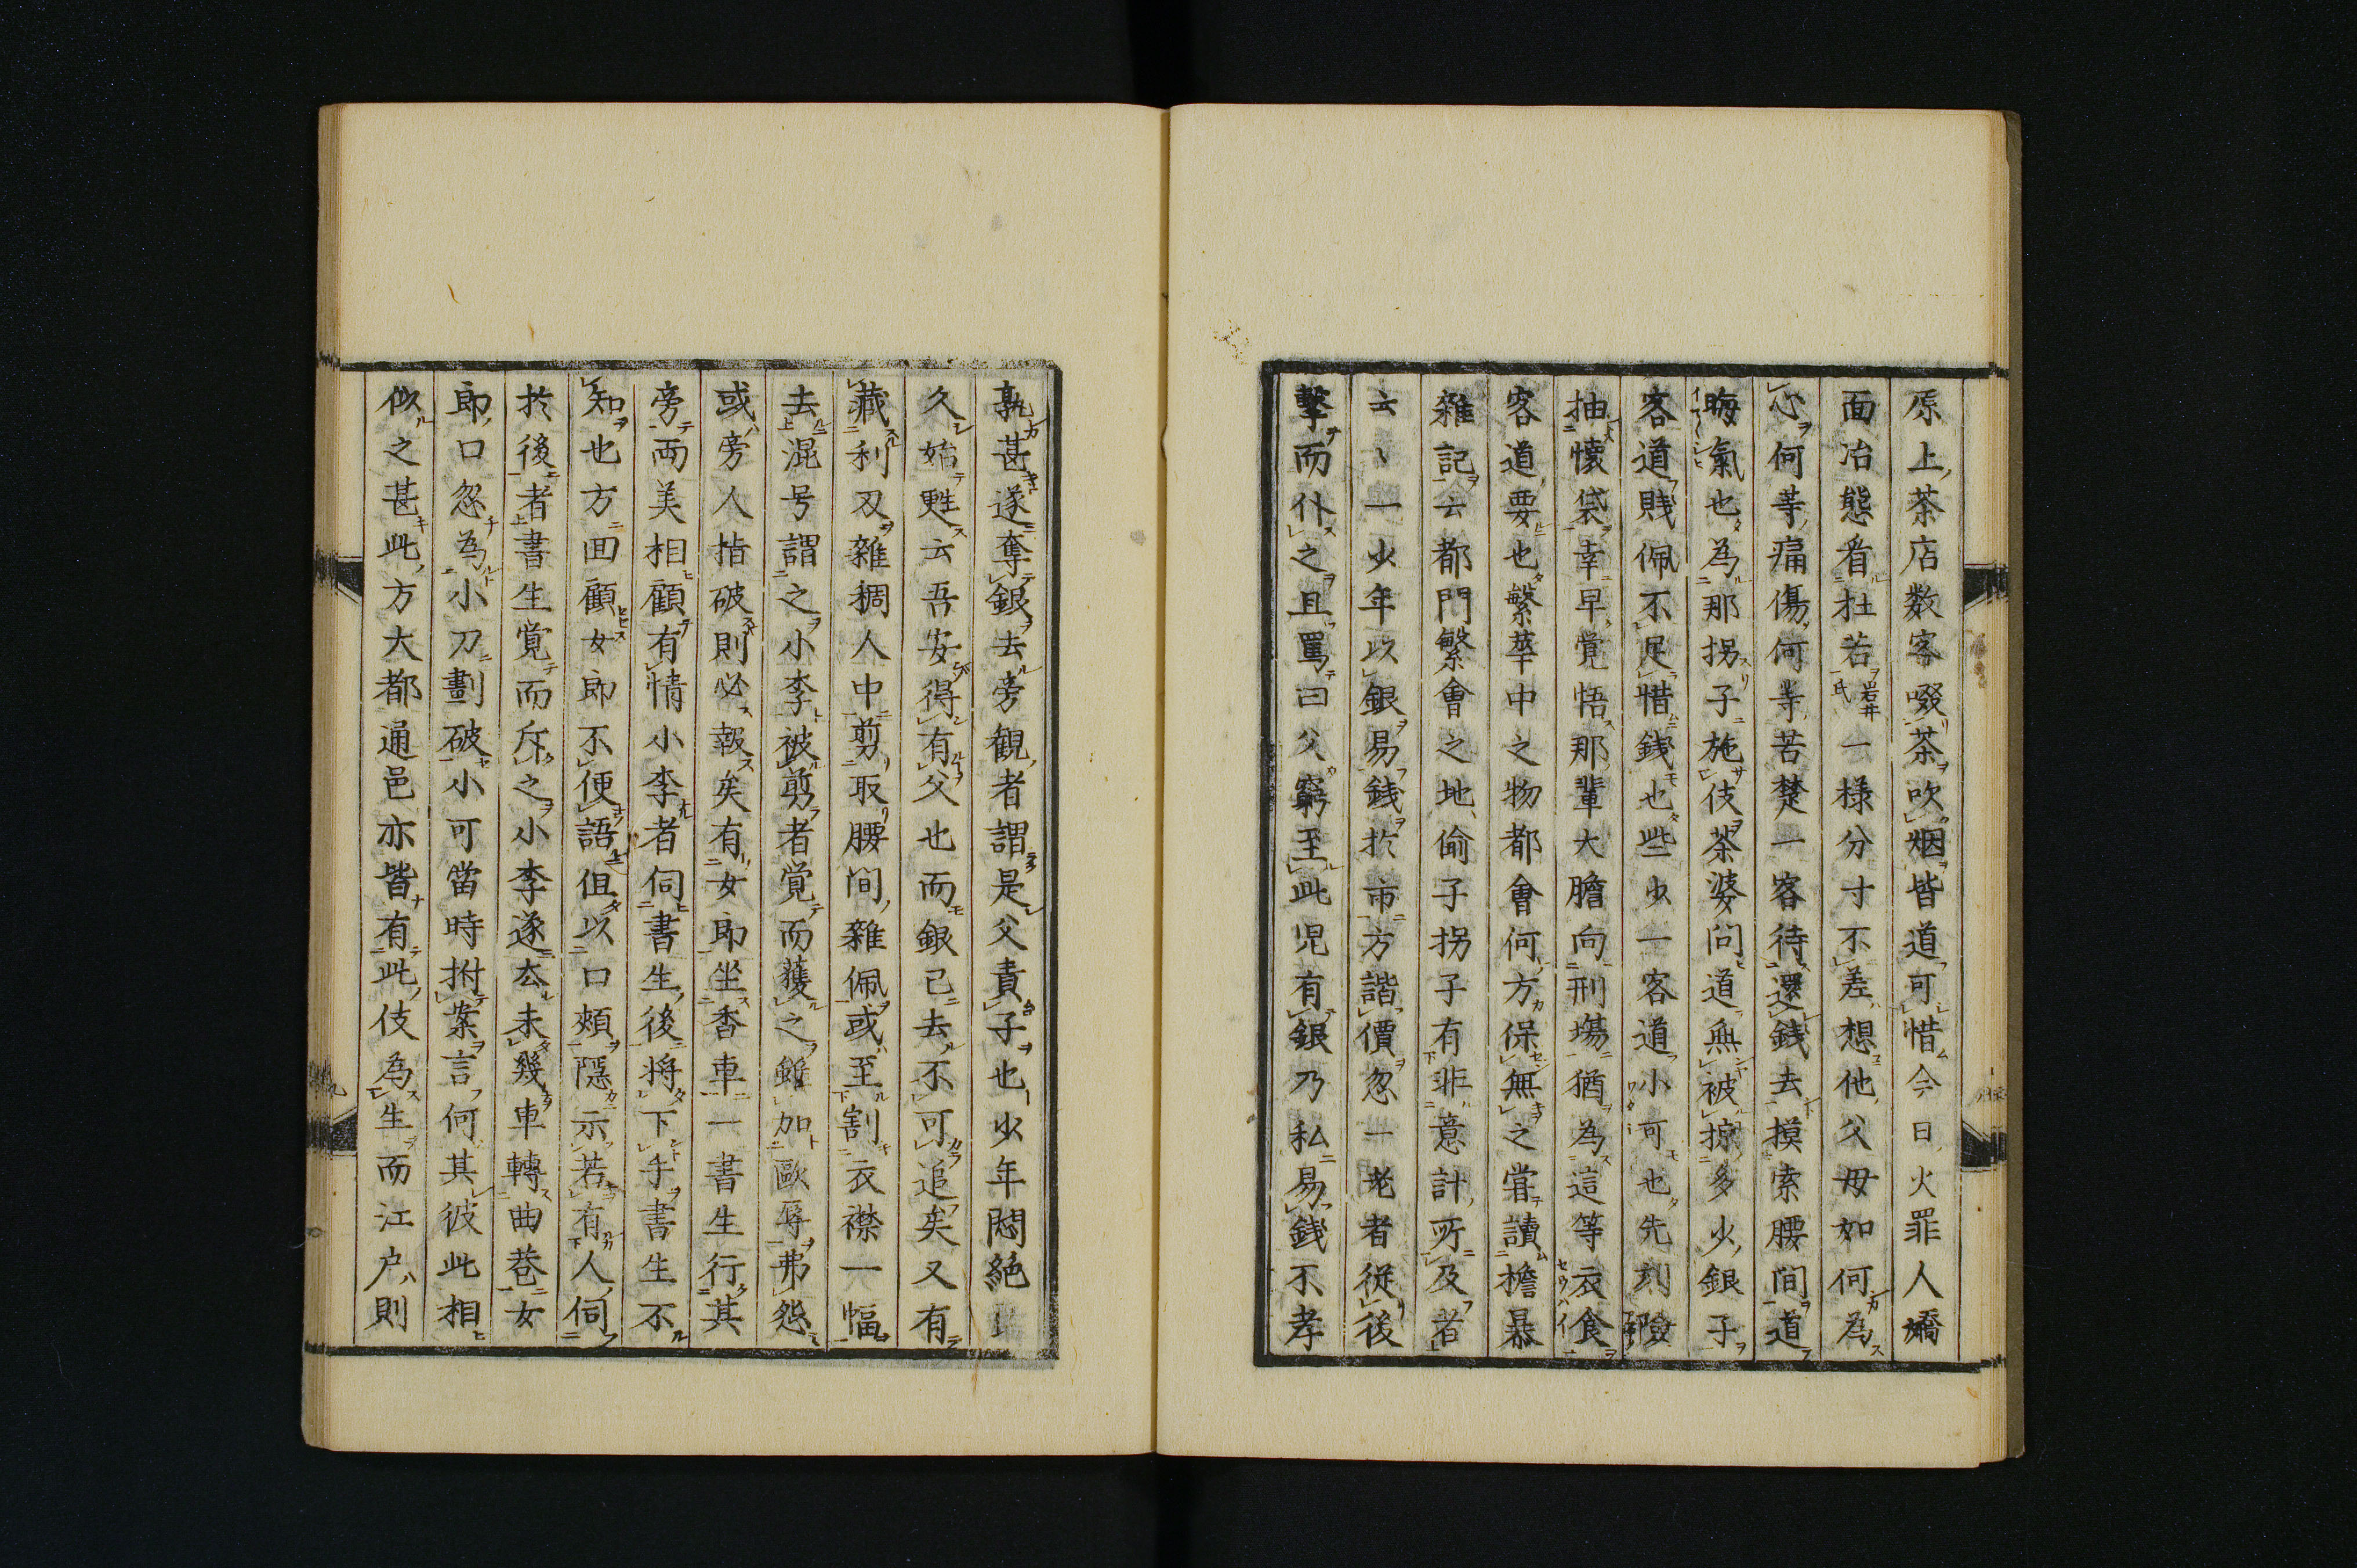 原上茶店数客啜茶吹烟皆道可惜今日火罪人嬌
面冶態看杜若岩井氏一様分寸不差想他父母如何為
心何等痛傷何等苦楚一客待還錢去摸索腰間道
晦氣也為那拐子施伎茶婆問道無被掠多少銀子
客道賤佩不足惜錢也些少一客道小可也先刻險
抽懐袋幸早覚悟那輩大膽向刑場猶為這等衣食
客道要也繁華中之物都會何方保無之甞讀檐暴
雜記云都門繁會之地偷子拐子有非意計所及者
云〻一少年以銀易錢於市方諧價忽一老者従後
擊而仆之且罵曰父窮至此児有銀乃私易錢不孝
孰甚遂奪銀去旁観者謂是父責子也少年悶絶
久始甦云吾安得有父也而銀已去不可追矣又有
藏利刃雜稠人中剪取腰间雜佩或至割衣襟一幅
去混号謂之小李被剪者覚而獲之雖加歐辱弗怨
或旁人指破則必報矣有女郎坐香車一書生行其
旁両美相顧有情小李者伺書生後将下手書生不
知也方回顧女郎不便語但以口頬隠示若有人伺
於後者書生覚而斥之小李遂去未幾車轉曲巷女
郎口忽為小刀劃破小可當時拊案言何其彼此相
似之甚此方大都通邑亦皆有此伎為生而江户則